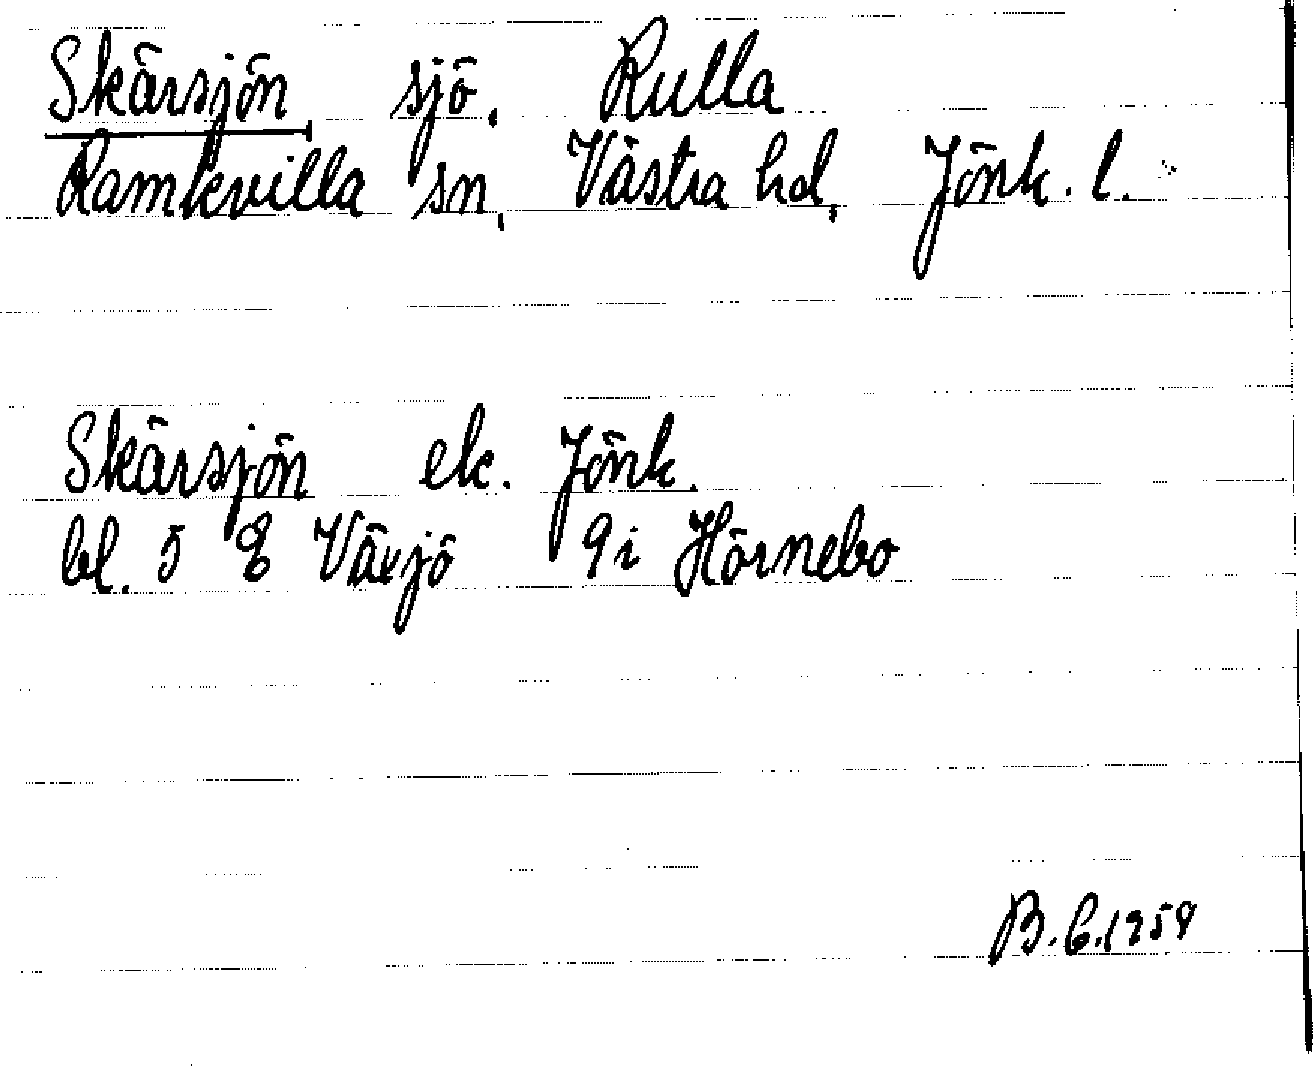 Skärsjön sjö. Rulla
Ramkvilla sn, Västra hd, Jönk. l.
Skärsjön ek. Jönk.
bl. 5 E Växjö 9i Hörnebo
B.C. 1959